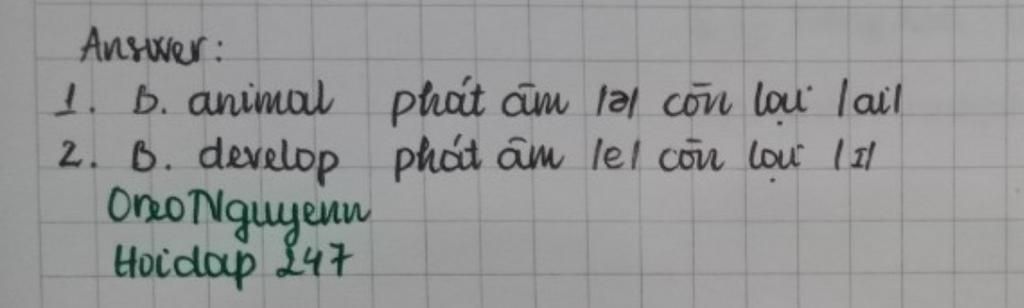 Answer:
1. B. animal phát âm /ə/ còn lại /ai/
2. B. develop phát âm /e/ còn lại /ɪ/
OreoNguyenn
Hoidap 247